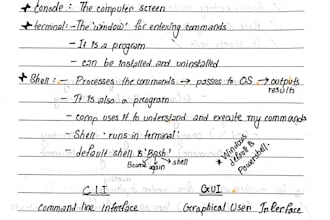 + Console : The computer screen
+ terminal :- The 'window' for entering commands
- It is a program
- can be installed and uninstalled
+ Shell :- Processes the commands → passes to OS → outputs results
- It is also a program
- comp uses it to understand and execute my commands
- Shell runs in terminal
- default shell is 'Bash'
again shell
* Windows default is Powershell.
C L I GUI
command line interface Graphical User Interface